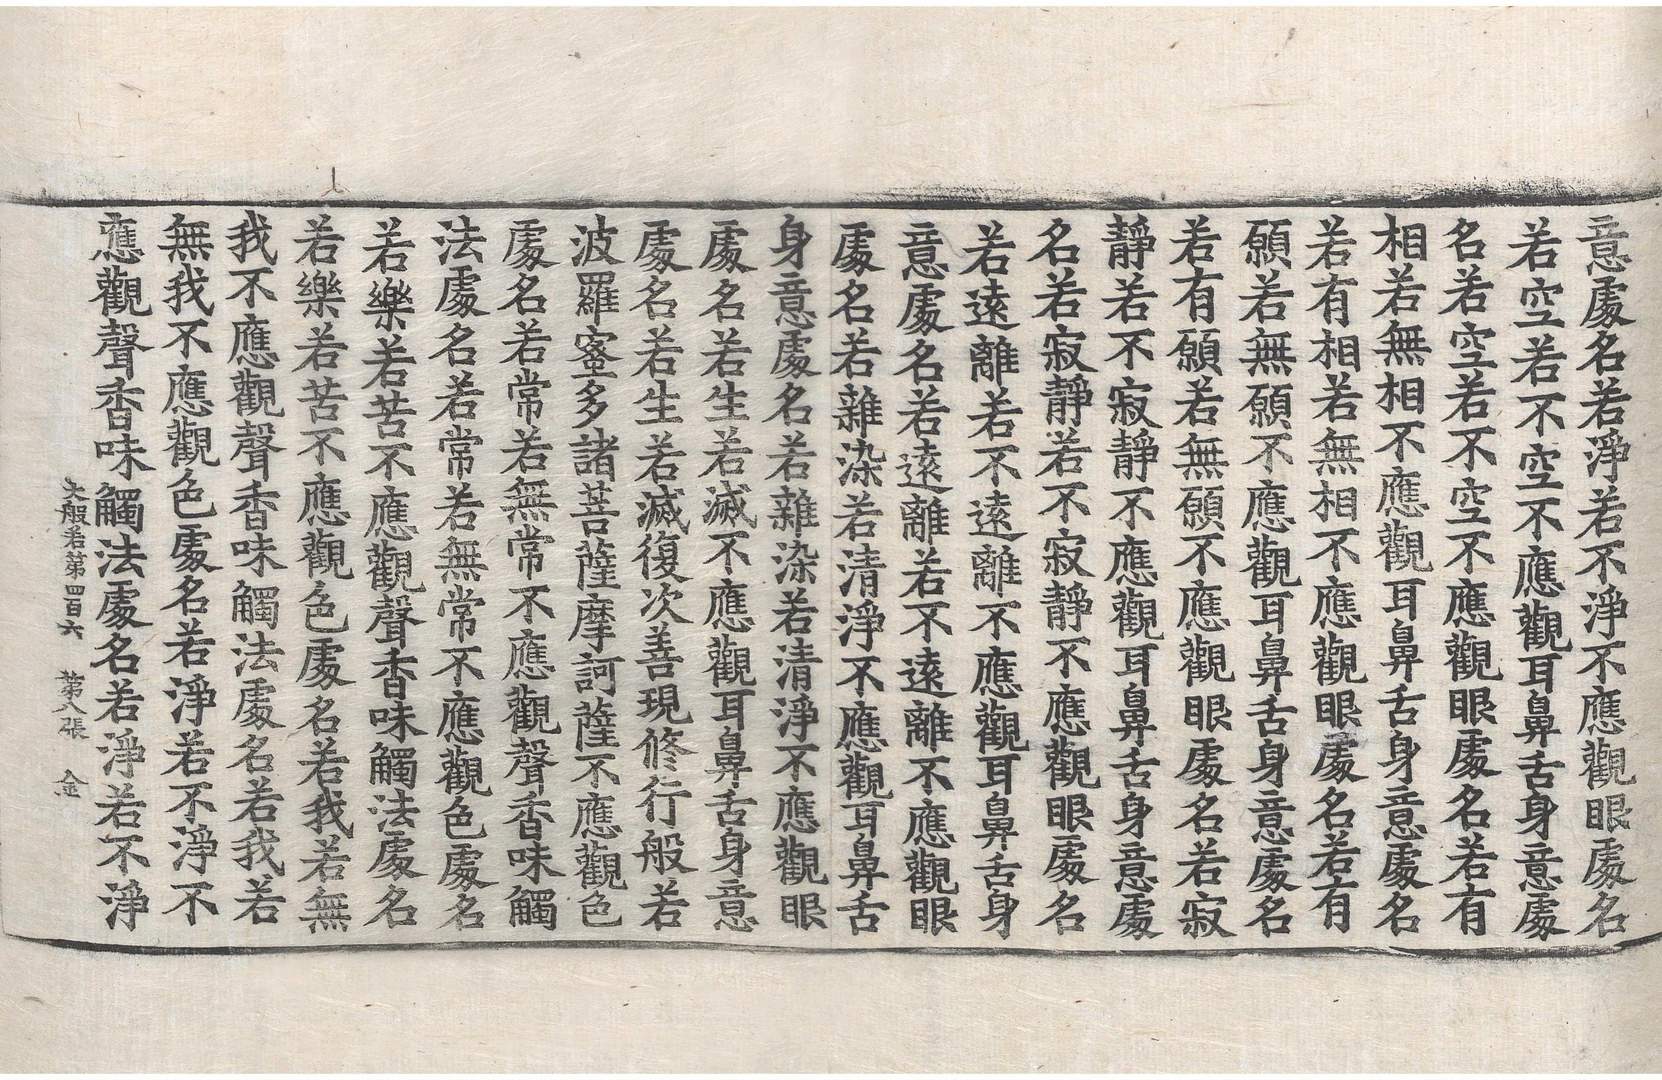 意處名若淨若不淨不應觀眼處名
若空若不空不應觀耳鼻舌身意處
名若空若不空不應觀眼處名若有
相若無相不應觀耳鼻舌身意處名
若有相若無相不應觀眼處名若有
願若無願不應觀耳鼻舌身意處名
若有願若無願不應觀眼處名若寂
靜若不寂靜不應觀耳鼻舌身意處
名若寂靜若不寂靜不應觀眼處名
若遠離若不遠離不應觀耳鼻舌身
意處名若遠離若不遠離不應觀眼
處名若雜染若清淨不應觀耳鼻舌
身意處名若雜染若清淨不應觀眼
處名若生若滅不應觀耳鼻舌身意
處名若生若滅復次善現修行般若
波羅蜜多諸菩薩摩訶薩不應觀色
處名若常若無常不應觀聲香味觸
法處名若常若無常不應觀色處名
若樂若苦不應觀聲香味觸法處名
若樂若苦不應觀色處名若我若無
我不應觀聲香味觸法處名若我若
無我不應觀色處名若淨若不淨不
應觀聲香味觸法處名若淨若不淨
大般若第四百六 第八張 金